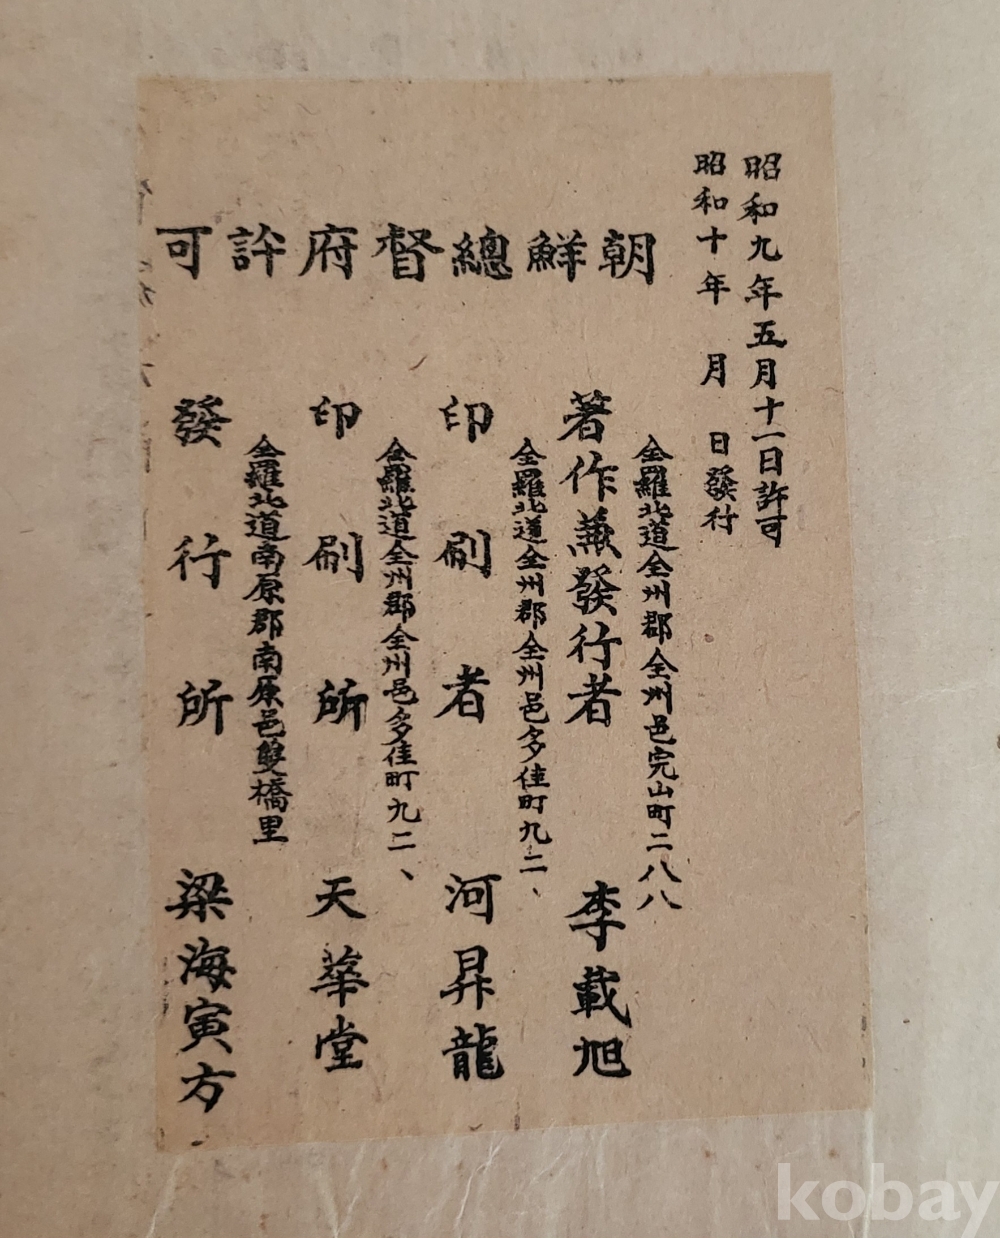 昭和九年五月十一日許可
昭和十年 月 日發行
朝鮮總督府許可
全羅北道全州郡全州邑完山町二八八
著作兼發行者 李載旭
全羅北道全州郡全州邑多佳町九二、
印刷者 河昇龍
全羅北道全州郡全州邑多佳町九二、
印刷所 天華堂
全羅北道南原郡南原邑雙橋里
發行所 梁海寅方
kobay